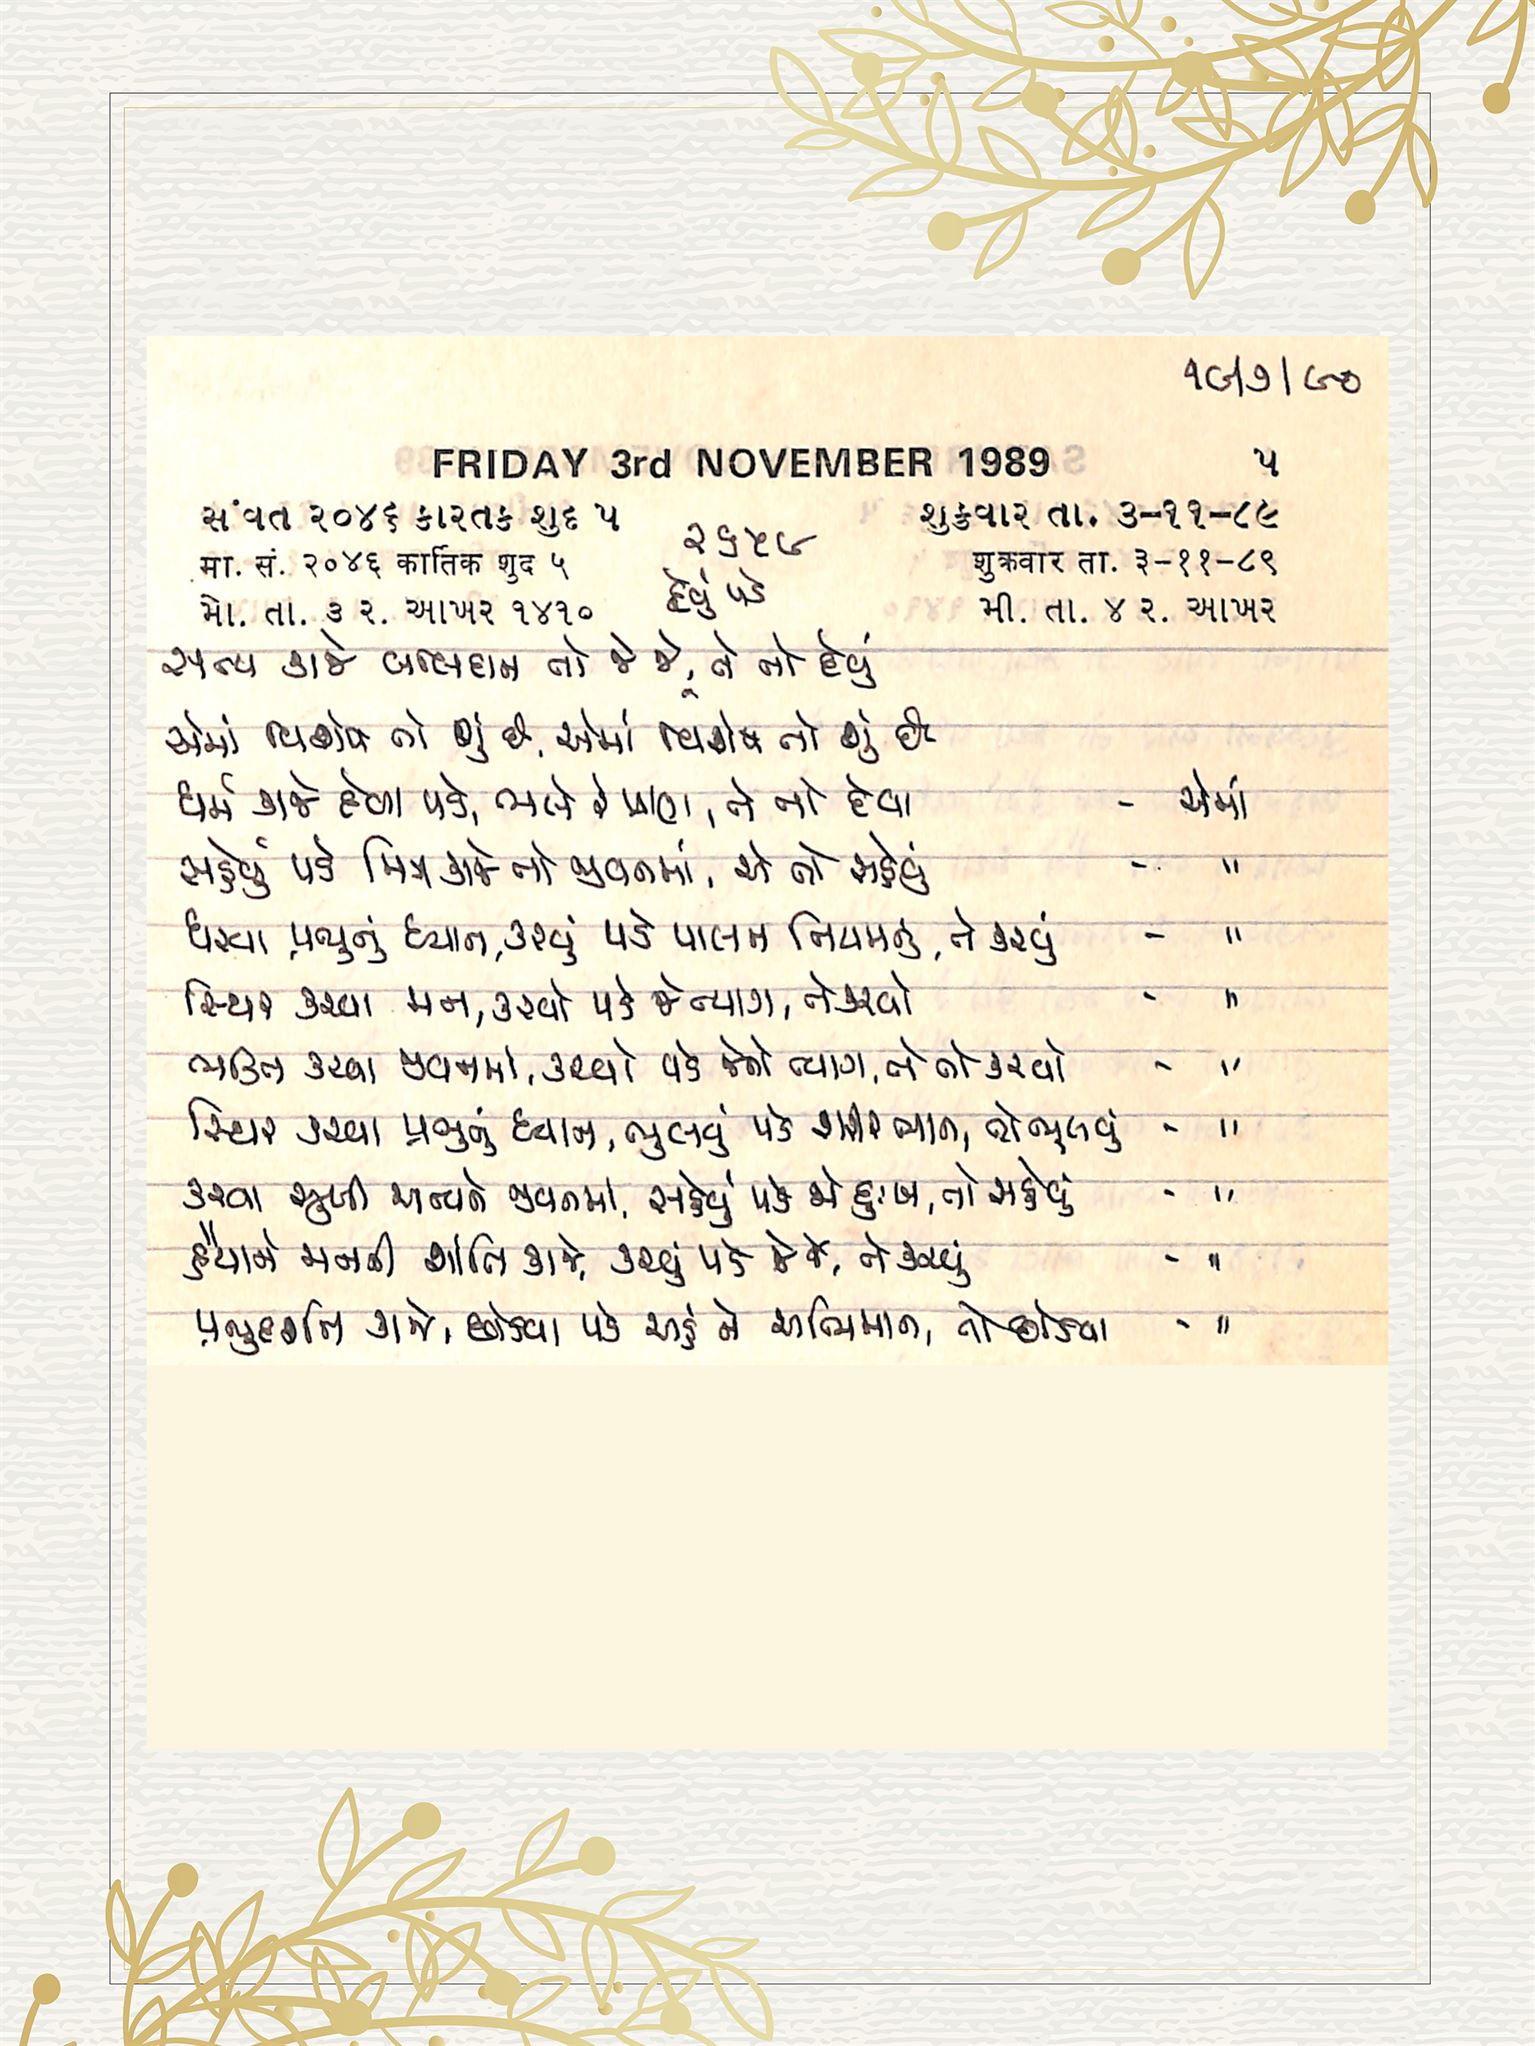 ૧૯/૭/૯૦
FRIDAY 3rd NOVEMBER 1989 ૫
સંવત ૨૦૪૬ કારતક શુદ ૫ શુક્રવાર તા. ૩-૧૧-૮૯
૨૬૫૯
मा. सं. २०४६ कार्तिक शुद ५ शुक्रवार ता. ३-११-८९
દેવું પડે
મો. તા. ૩ ર. આખર ૧૪૧૦ મી. તા. ૪ ર. આખર
સત્ય કાજે બલિદાન તો જે જે, તે તો દેવું
એમાં વિશેષ તો શું છે, એમાં વિશેષ તો શું છે
ધર્મ કાજે દેવા પડે, ભલે રે પ્રાણ, તે તો દેવા - એમાં
સહેવું પડે મિત્ર કાજે તો જીવનમાં, એ તો સહેવું - "
ધરવા પ્રભુનું ધ્યાન, કરવું પડે પાલન નિયમનું, તે કરવું - "
સ્થિર કરવા મન, કરવો પડે જે ત્યાગ, તે કરવો - "
ભક્તિ કરવા જીવનમાં, કરવો પડે જેનો ત્યાગ, તે તો કરવો - "
સ્થિર કરવા પ્રભુનું ધ્યાન, ભુલવું પડે શરીર ભાન, તો ભૂલવું - "
કરવા સુખી અન્યને જીવનમાં, સહેવું પડે જે દુઃખ, તો સહેવું - "
હૈયાને મનની શાંતિ કાજે, કરવું પડે જે જે, તે કરવું - "
પ્રભુદર્શન કાજે, છોડવા પડે અહં ને અભિમાન, તો છોડવા - "